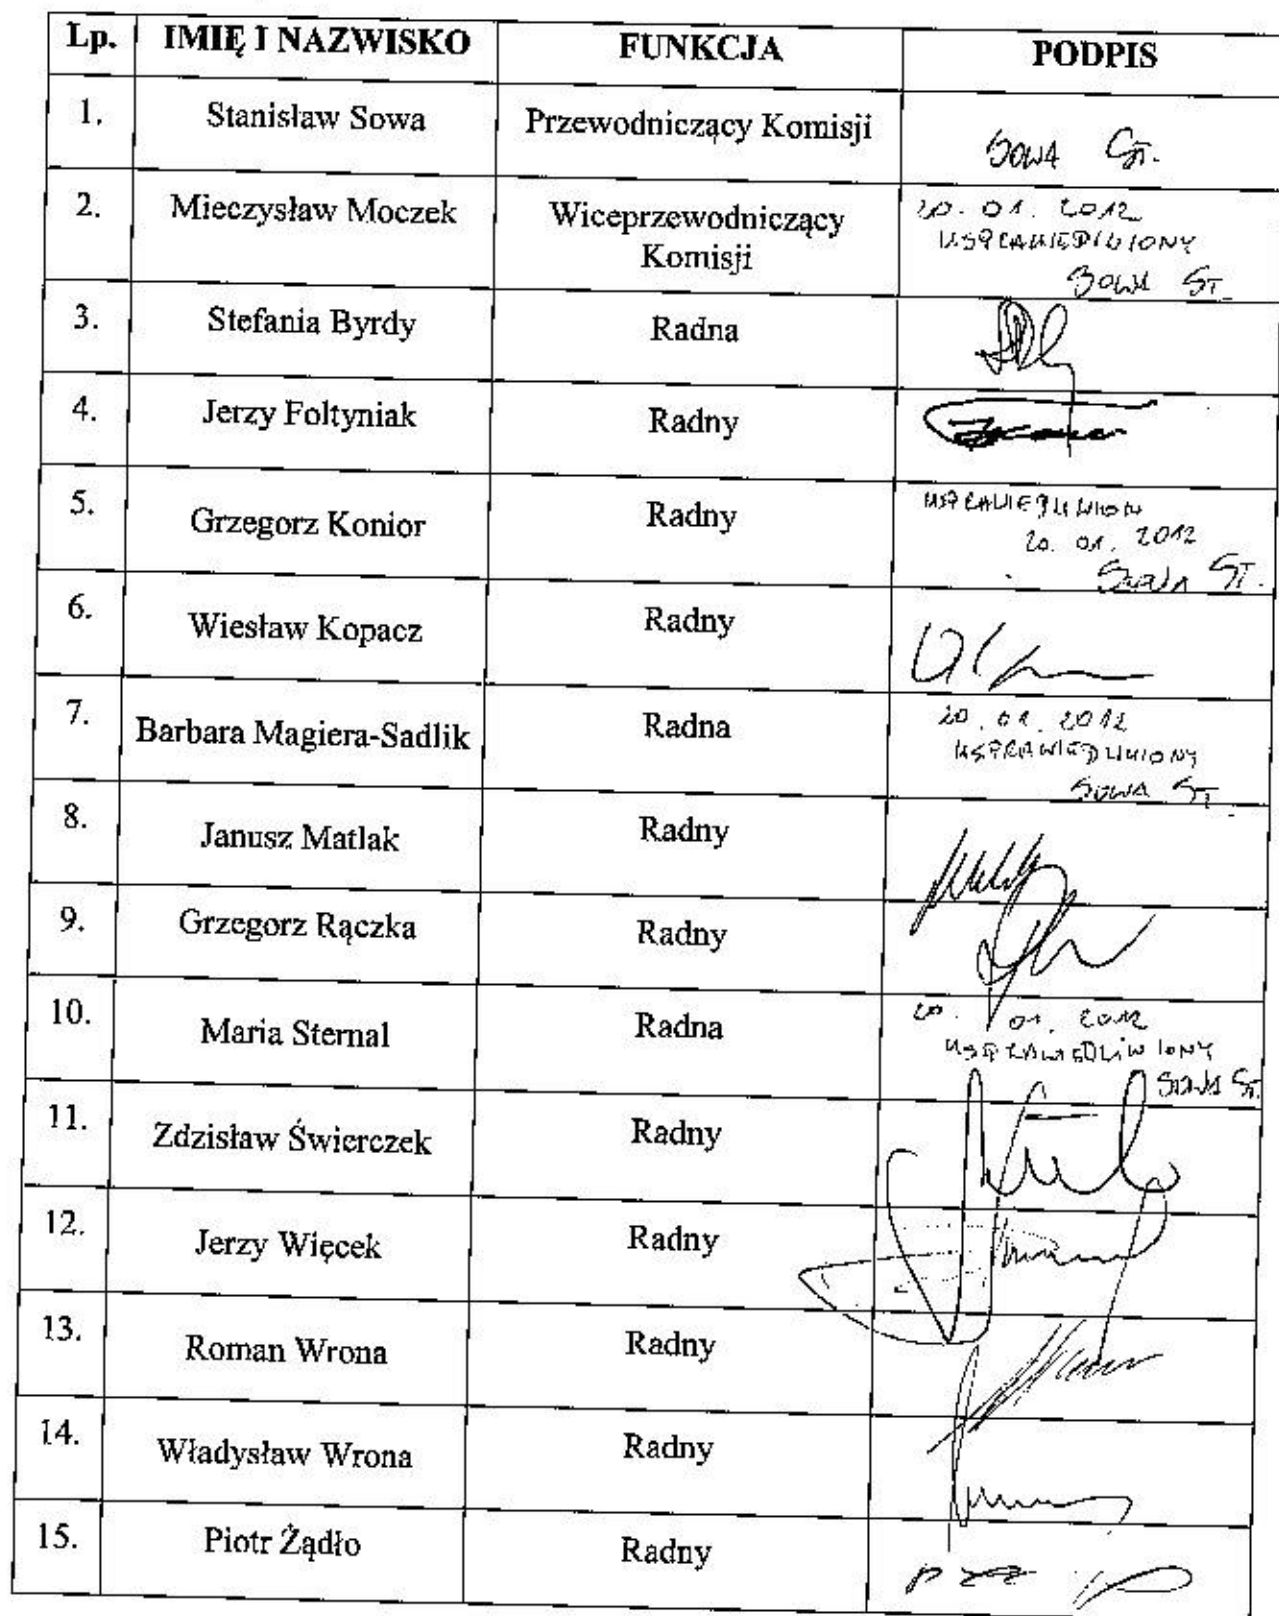 Lp. IMIĘ I NAZWISKO FUNKCJA PODPIS
1. Stanisław Sowa Przewodniczący Komisji SOWA ST.
2. Mieczysław Moczek Wiceprzewodniczący 20.01.2012
Komisji USPRAWIEDLIWIONY
SOWA ST.
3. Stefania Byrdy Radna
4. Jerzy Foltyniak Radny
5. Grzegorz Konior Radny USPRAWIEDLIWION
20.01.2012
SOWA ST.
6. Wiesław Kopacz Radny
7. Barbara Magiera-Sadlik Radna 20.01.2012
USPRAWIEDLIWIONY
SOWA ST.
8. Janusz Matlak Radny
9. Grzegorz Rączka Radny
10. Maria Sternal Radna 20.01.2012
USPRAWIEDLIWIONY
SOWA ST.
11. Zdzisław Świerczek Radny
12. Jerzy Więcek Radny
13. Roman Wrona Radny
14. Władysław Wrona Radny
15. Piotr Żądło Radny